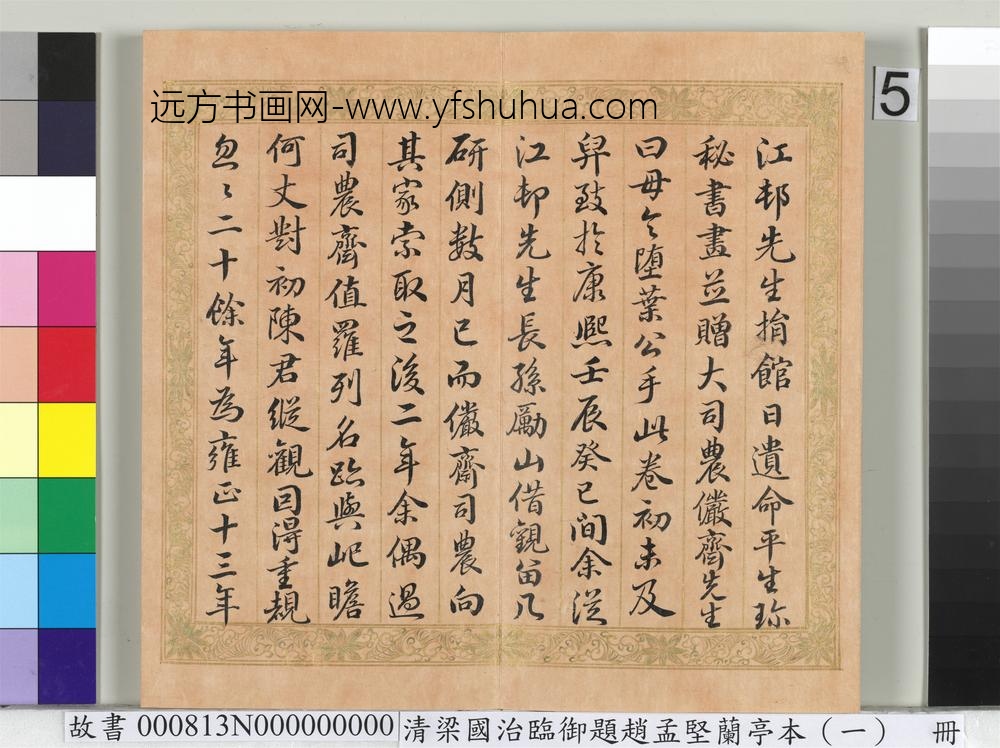 远方书画网-www.yfshuhua.com
5
江邨先生捐館日遺命平生珎
秘書畫並贈大司農儼齊先生
曰毋令墮葉公手此卷初未及
畀致於康熙壬辰癸巳間余從
江邨先生長孫勵山借觀留几
研側數月已而儼齋司農向
其家索取之後二年余偶過
司農齋值羅列名跡與屺瞻
何丈對初陳君縱觀因得重覩
忽〻二十餘年為雍正十三年
故書 000813N000000000 清梁國治臨御題趙孟堅蘭亭本（一） 冊